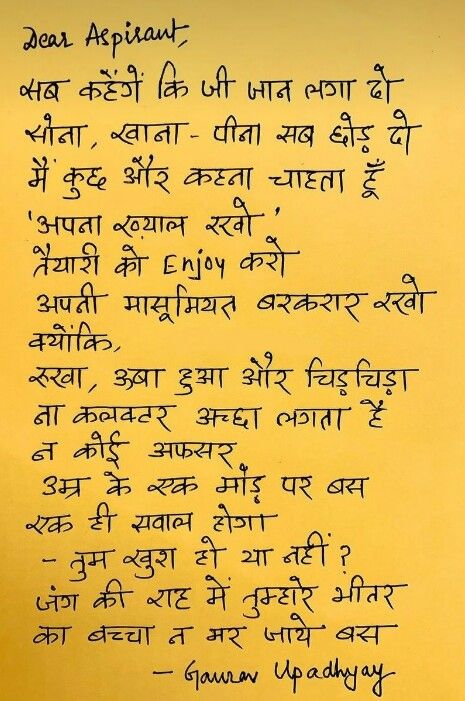 Dear Aspirant,
सब कहेंगें कि जी जान लगा दो
सोना, खाना - पीना सब छोड़ दो
मैं कुछ और कहना चाहता हूँ
'अपना ख़्याल रखो'
तैयारी को Enjoy करो
अपनी मासूमियत बरकरार रखो
क्योंकि,
रुखा, ऊबा हुआ और चिड़चिड़ा
ना कलक्टर अच्छा लगता है
न कोई अफसर
उम्र के एक मोड़ पर बस
एक ही सवाल होगा
- तुम खुश हो या नहीं ?
जंग की राह में तुम्हारे भीतर
का बच्चा न मर जाये बस
- Gaurav Upadhyay